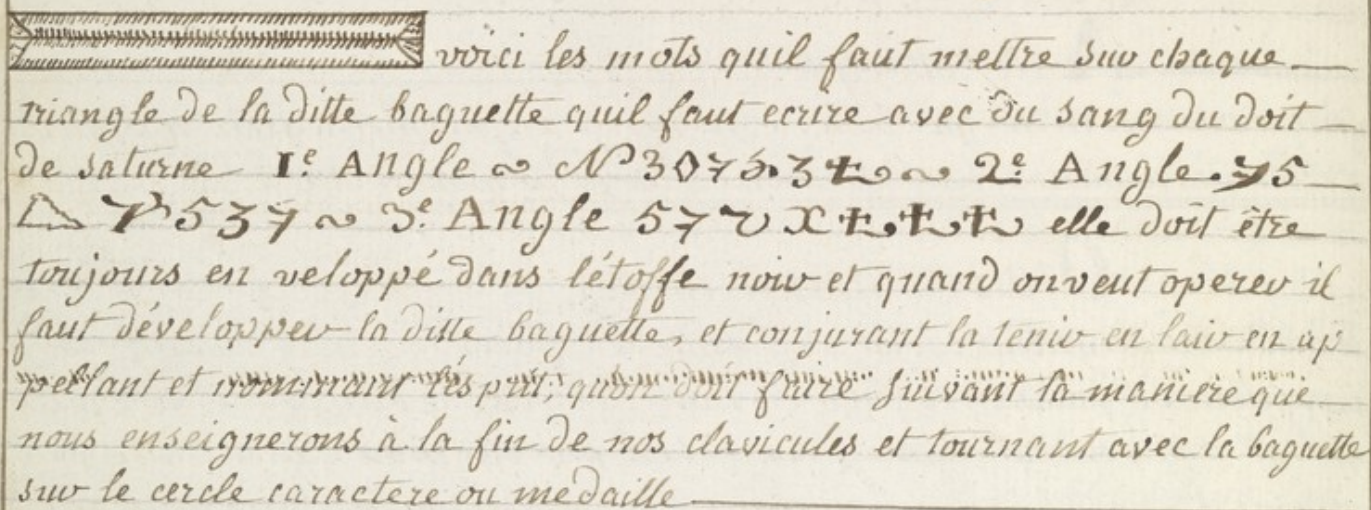 voici les mots quil faut mettre sur chaque
triangle de la ditte baguette quil faut ecrire avec du sang du doit
de saturne 1.e Angle ~ N 3075.3 ~ 2.e Angle . 75
7 5 3 7 ~ 3.e Angle 5 7 7 X elle doit être
toujours en veloppé dans létoffe noir et quand on veut operer il
faut développer la ditte baguette, et conjurant la tenir en lair en ap
pellant et nommant lésprit, quon doit faire suivant la maniere que
nous enseignerons à la fin de nos clavicules et tournant avec la baguette
sur le cercle caractere ou medaille